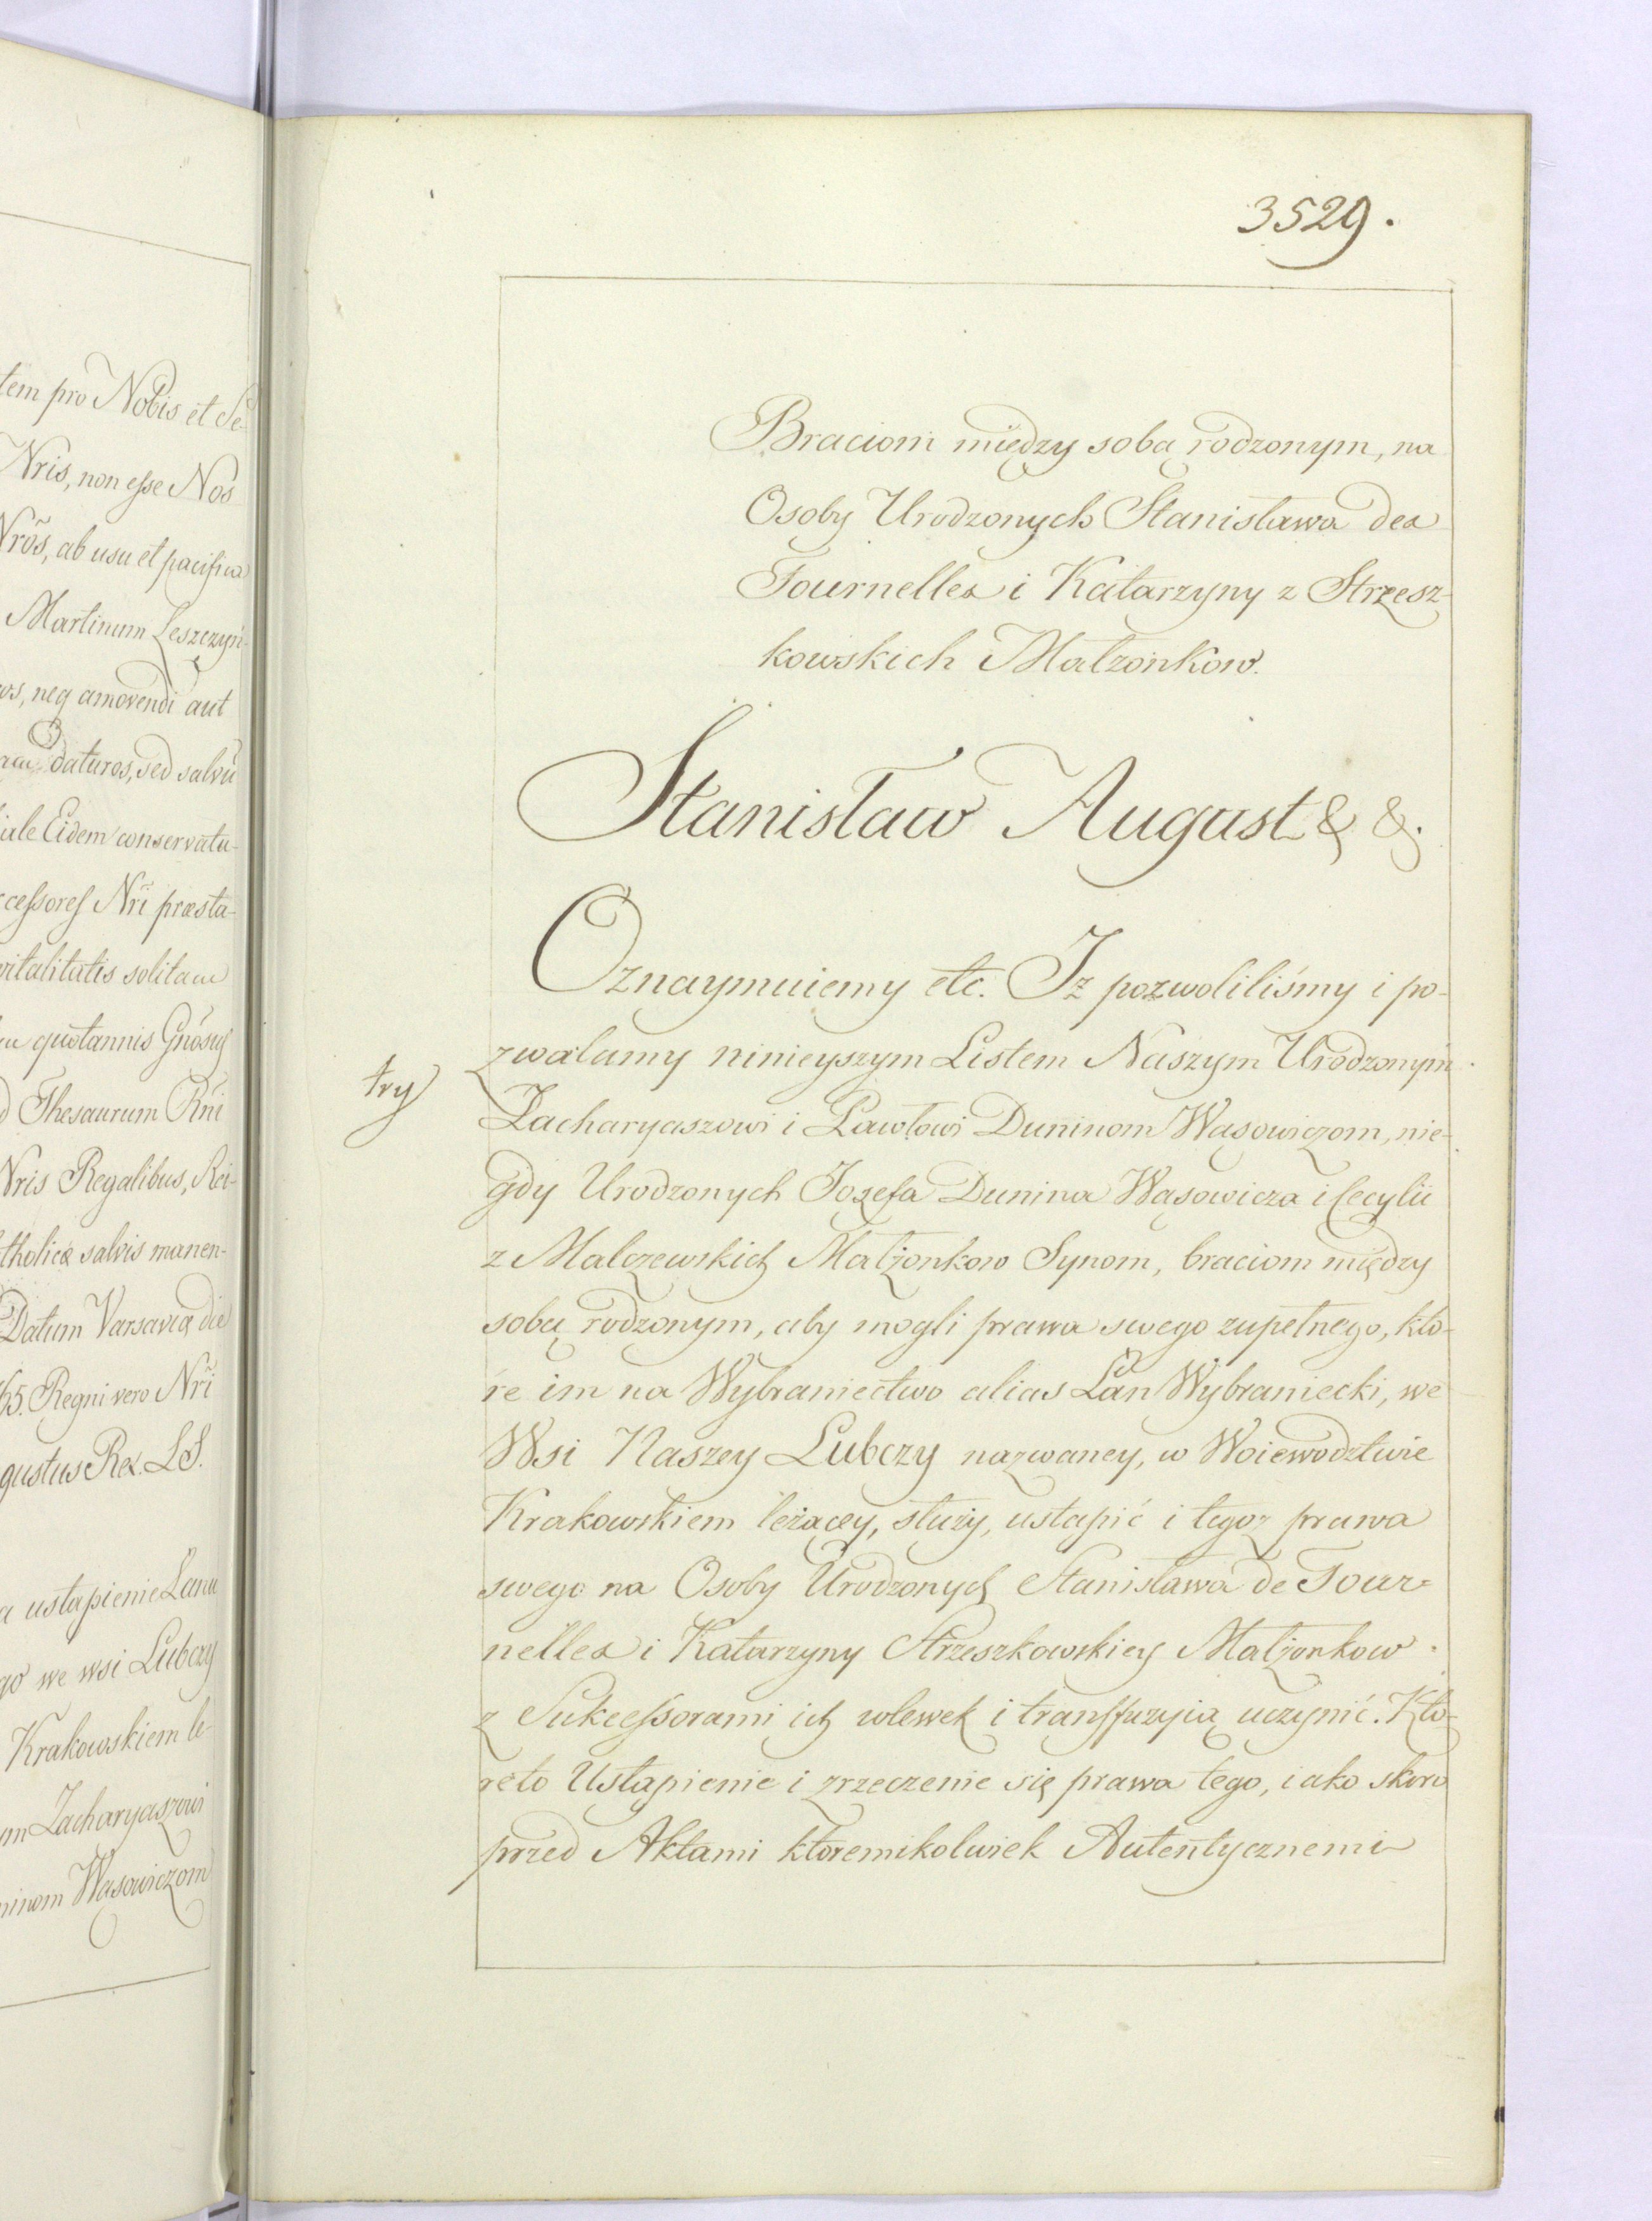 tem pro Nobis et Se-
Nris, non esse Nos
Nrõs, ab usu et pacifica
Martinum Leszczyń-
neq amovendi aut
daturos, sed salvũ
Eidem conservatu-
ccessores Nri præsta-
vitalitatis solitam
quotannis Gnosus
Thesaurum Rñi
Nris Regalibus, Rei-
tholicæ salvis manen-
Datum Varsaviæ die
65. Regni vero Nri
gustus Rex. LS.
ustąpienie Łanu
go we wsi Lubczy
Krakowskiem le-
Zacharyaszowi
ninom Wąsowiczom
3529.
Braciom między sobą rodzonym, na
Osoby Urodzonych Stanisława des
Tournelles i Katarzyny z Strzesz-
kowskich Małzonkow.
Stanisław August & &.
Oznaymuiemy etc. Iż pozwoliliśmy i po-
zwalamy ninieyszym Listem Naszym Urodzonym
try
Zacharyaszowi i Pawłowi Duninom Wąsowiczom, nie-
gdy Urodzonych Jozefa Dunina Wąsowicza i Cecylii
z Malczewskich Małżonkow Synom, braciom między
sobą rodzonym, aby mogli prawa swego zupełnego, kto-
re im na Wybraniectwo alias Łan Wybraniecki, we
Wsi Naszey Lubczy nazwaney, w Woiewodztwie
Krakowskiem leżącey, służy, ustąpić i tegoz prawa
swego na Osoby Urodzonych Stanisława de Tour=
nelles i Katarzyny Strzeszkowskiey Małżonkow
z Sukcessorami ich wlewek i transfuzyią uczynić. Kto-
re to Ustąpienie i zrzeczenie się prawa tego, iako skoro
przed Aktami ktoremikolwiek Autentycznemi